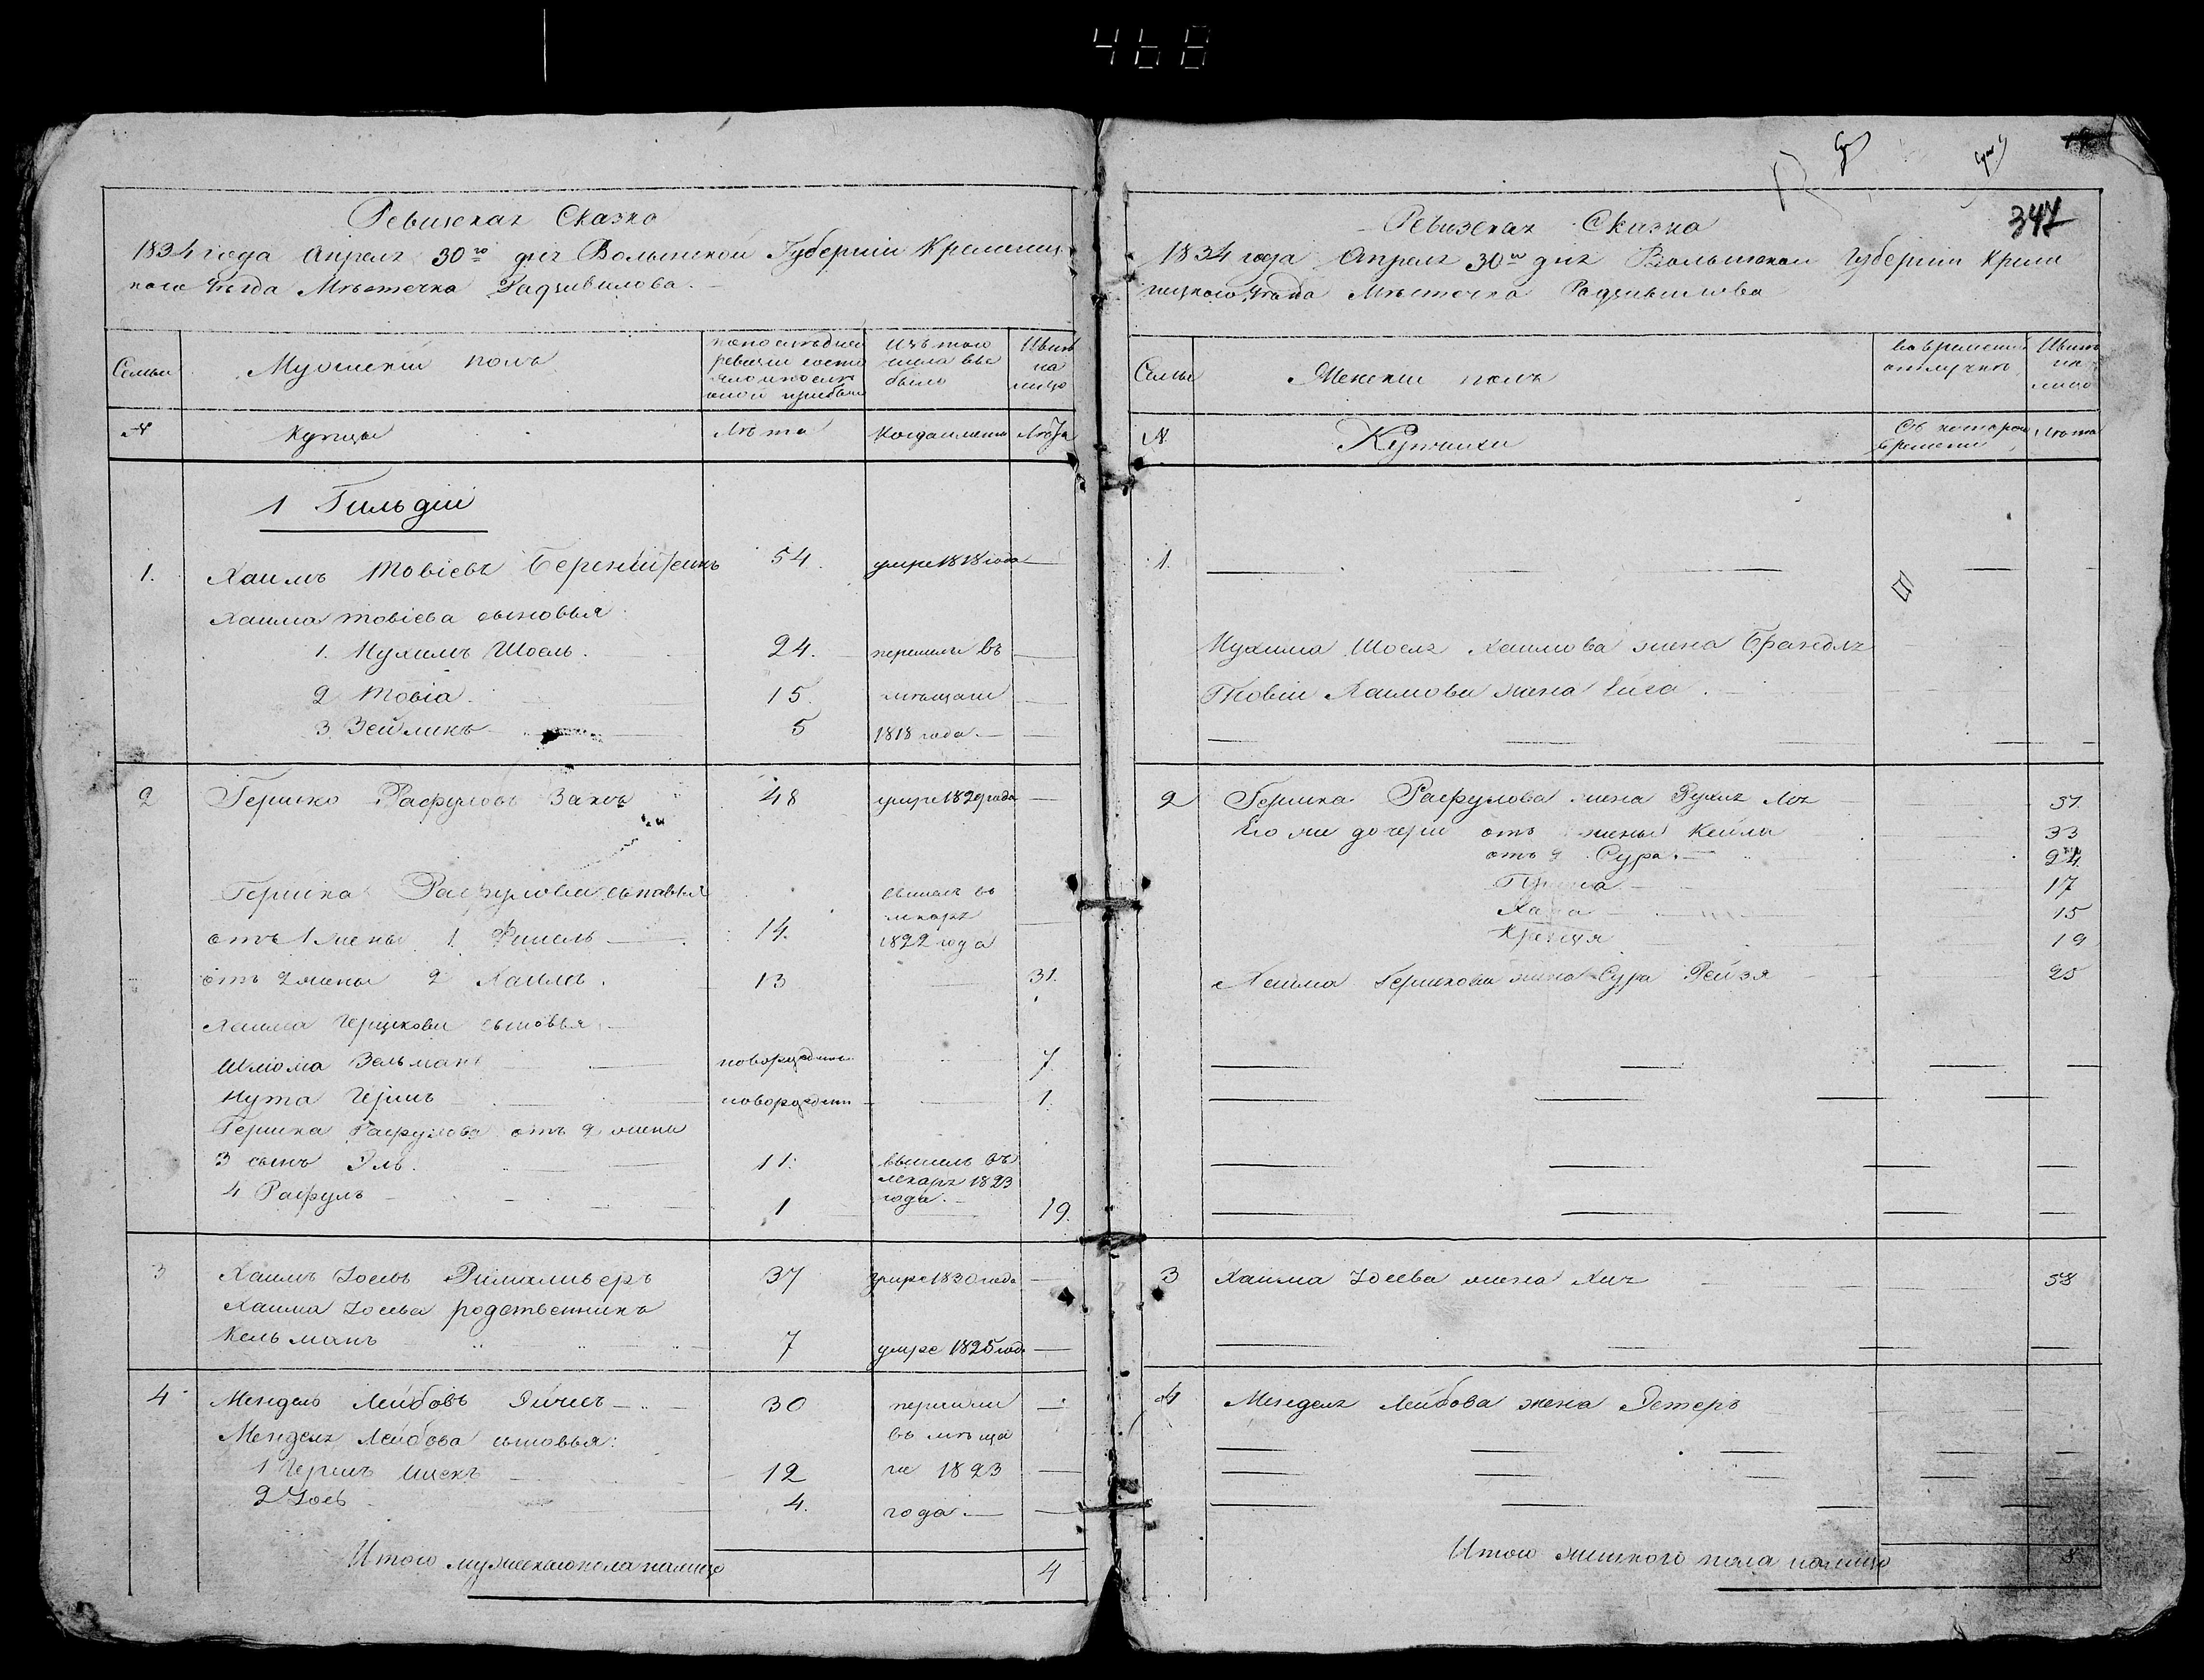 468
Ревизская Сказка
1834 года Апреля 30го дня Волынской Губерніи Кременец
каго Уезда Местечка Радзивилова. —
Семьи
Мужескій полъ
по последней
ревизіи состо
яло и после
оной прибыло
Изъ того
числа вы
было
Ныне
на
лицо
№
Купцы
Лета
Когда именно
Лета
1 Гильдіи
1. Хаимъ Товіевъ Беренштеинъ 54. умре 1818 года —
Хаима Товіева сыновья
1. Нухимъ Шоель. 24. перешли въ —
2 Товіа. 15. мещане —
3 Зейликъ 5 1818 года. — —
2 Гершко Рафуловъ Заксъ 48 умре 1829 года —
Гершка Рафулова сыновья
вышелъ въ
лекаря
отъ 1 жены 1. Фишель — 14. 1822 года —
отъ 2 жены 2 Хаимъ. 13 — 31.
Хаима Гершкова сыновья. —
Шліома Зельманъ — новорожден. — 7.
Нута Гершъ — новорожден — 1.
Гершка Рафулова отъ 2 жены
3 сынъ Эль. 11. вышелъ въ
лекаря 1823
4 Рафулъ — 1 года. — 19.
3 Хаимъ Іосевъ 37 умре 1830 года —
Хаима Іосева родственникъ
Кельманъ 7 умре 1825 года —
4 Мендель Лейбовъ — 30 перешли —
Менделя Лейбова сыновья: въ меща
1 Гершъ Ицекъ 12 не 1823 —
2 Іось 4. года. — —
Итого мужескаго пола налицо 4
347
Ревизская Сказка
1834 года Апреля 30го дня Волынской Губерніи Креме
нецкаго Уезда Местечка Радзивилова
Семьи
Женскій полъ
Во временной
отлучке
Ныне
на
лицо
№
Купчихи
Съ котораго
времени
Лета
1.
Нухима Шоеля Хаимова жена Брандля
Товіи Хаимова жена
2 Гершка Рафулова жена Рухля Лея 51.
Его же дочери отъ 1 жены Кейла 33
отъ 2 Сура. — 24
17
Хана 15
19
Хаима Гершкова жена Сура Рейзя 25
3 Хаима Іосева жена Хая 58
4 Менделя Лейбова жена Эстеръ
Итого женскаго пола налицо 8